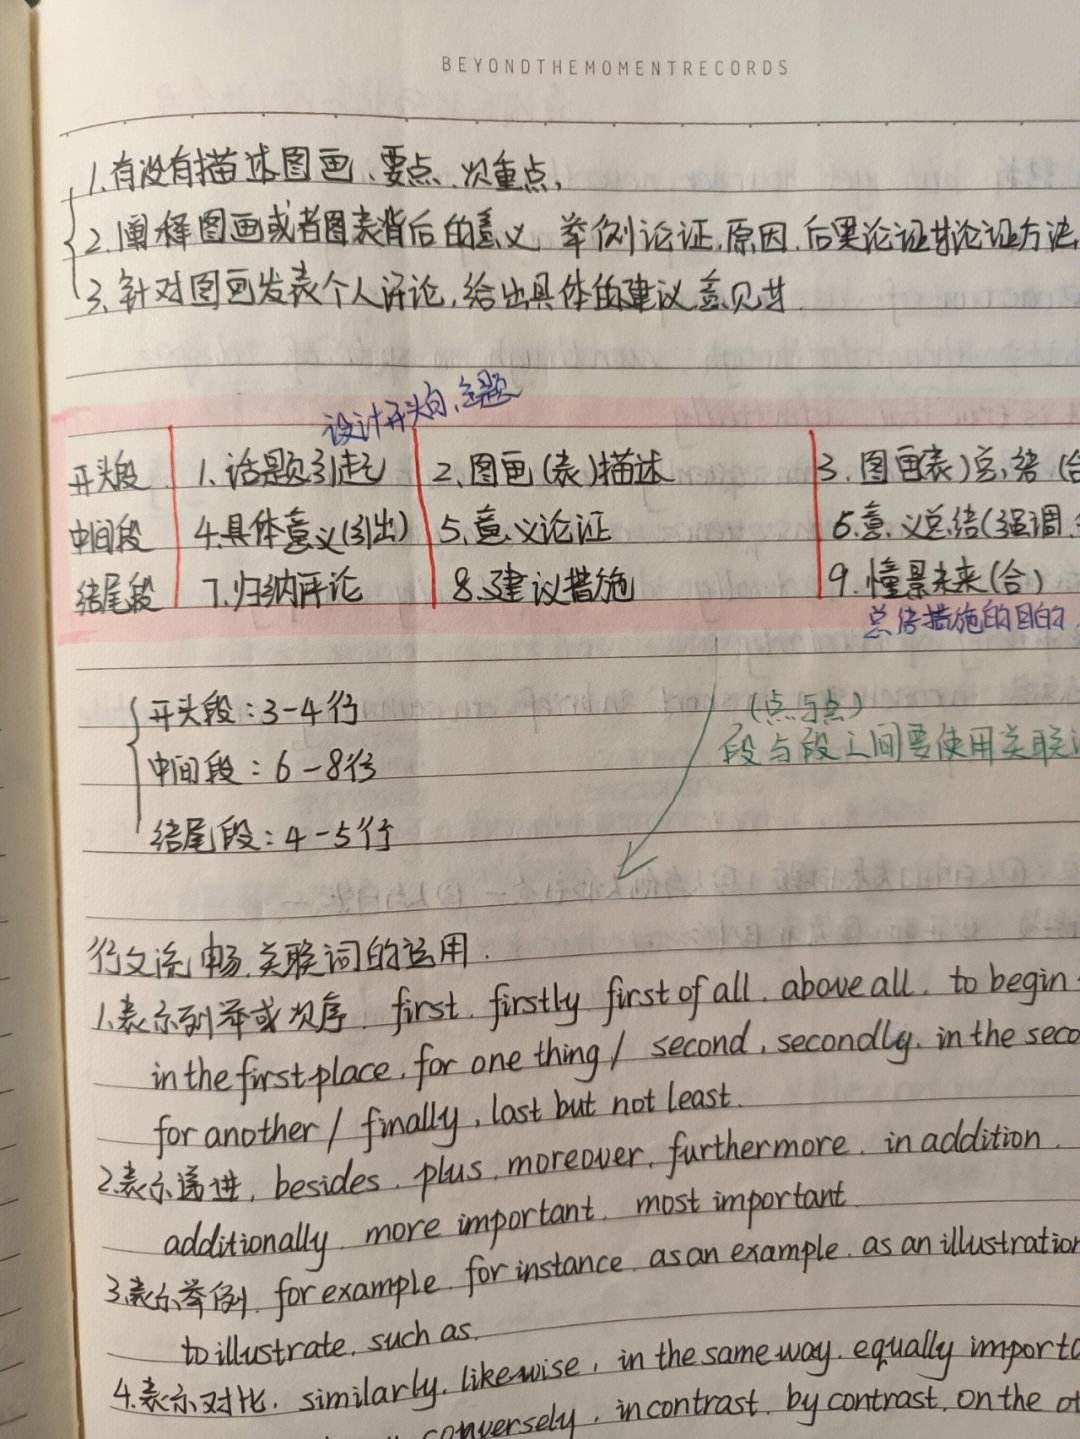 BEYONDTHEMOMENTRECORDS
1.有没有描述图画、要点、次重点,
2.阐释图画或者图表背后的意义 举例论证,原因、后果论证等论证方法
3.针对图画发表个人评论,给出具体的建议、意见等.
设计开头句、主题
开头段 1.话题引起 2.图画(表)描述 3.图画(表)总结(合
中间段 4.具体意义(引出) 5.意义论证 6.意义总结(强调
结尾段 7.归纳评论 8.建议措施 9.憧景未来(合)
总结措施的目的
开头段:3-4行
(点与点)
中间段:6-8行
段与段之间要使用关联
结尾段:4-5行
行文流畅,关联词的运用.
1.表示列举或次序. first. firstly first of all. above all. to begin
in the first place. for one thing/ second, secondly. in the seco
for another/ finally, last but not least.
2.表示递进, besides. plus. moreover. furthermore. in addition.
additionally. more important. most important
3.表示举例. for example. for instance. as an example. as an illustration
to illustrate. such as.
4.表示对比. similarly. likewise, in the same way. equally importa
conversely, in contrast. by contrast. on the ot